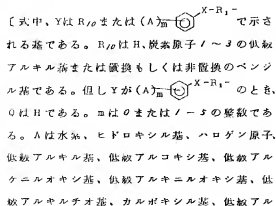 〔式中、YはR₁₀または(A)m X-R₁-で示さ
れる基である。R₁₀はH、炭素原子1~3の低級
アルキル基または置換もしくは非置換のベンジ
ル基である。但しYが(A)m X-R₁-のとき、
QはHである。mは0または1-5の整数であ
る。Aは水素、ヒドロキシル基、ハロゲン原子、
低級アルキル基、低級アルコキシ基、低級アル
ケニルオキシ基、低級アルキニルオキシ基、低
級アルキルチオ基、カルボキシル基、低級アル